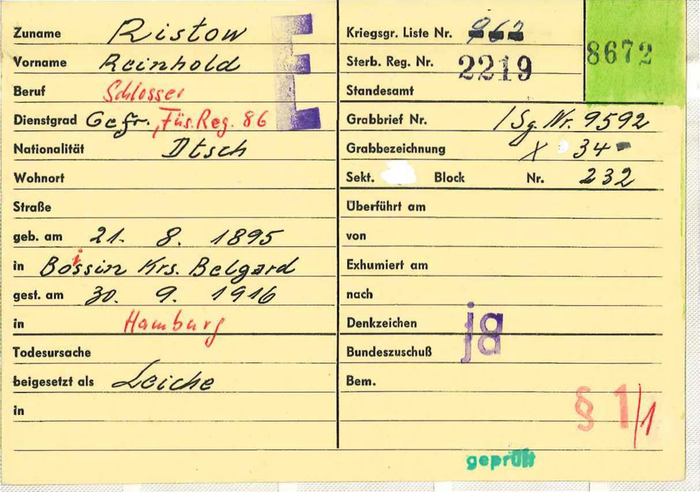 Zuname Ristow
Vorname Reinhold
Beruf Schlosser
Dienstgrad Gefr., Füs. Reg. 86
Nationalität Dtsch
Wohnort
Straße
geb. am 21. 8. 1895
in Bossin Krs. Belgard
gest. am 30. 9. 1916
in Hamburg
Todesursache
beigesetzt als Leiche
in
E
Kriegsgr. Liste Nr. 962
Sterb. Reg. Nr. 2219
Standesamt
8672
Grabbrief Nr. / Sg. Nr. 9592
Grabbezeichnung X 34
Sekt. Block Nr. 232
Überführt am
von
Exhumiert am
nach
Denkzeichen ja
Bundeszuschuß ja
Bem.
§ 1/1
geprüft